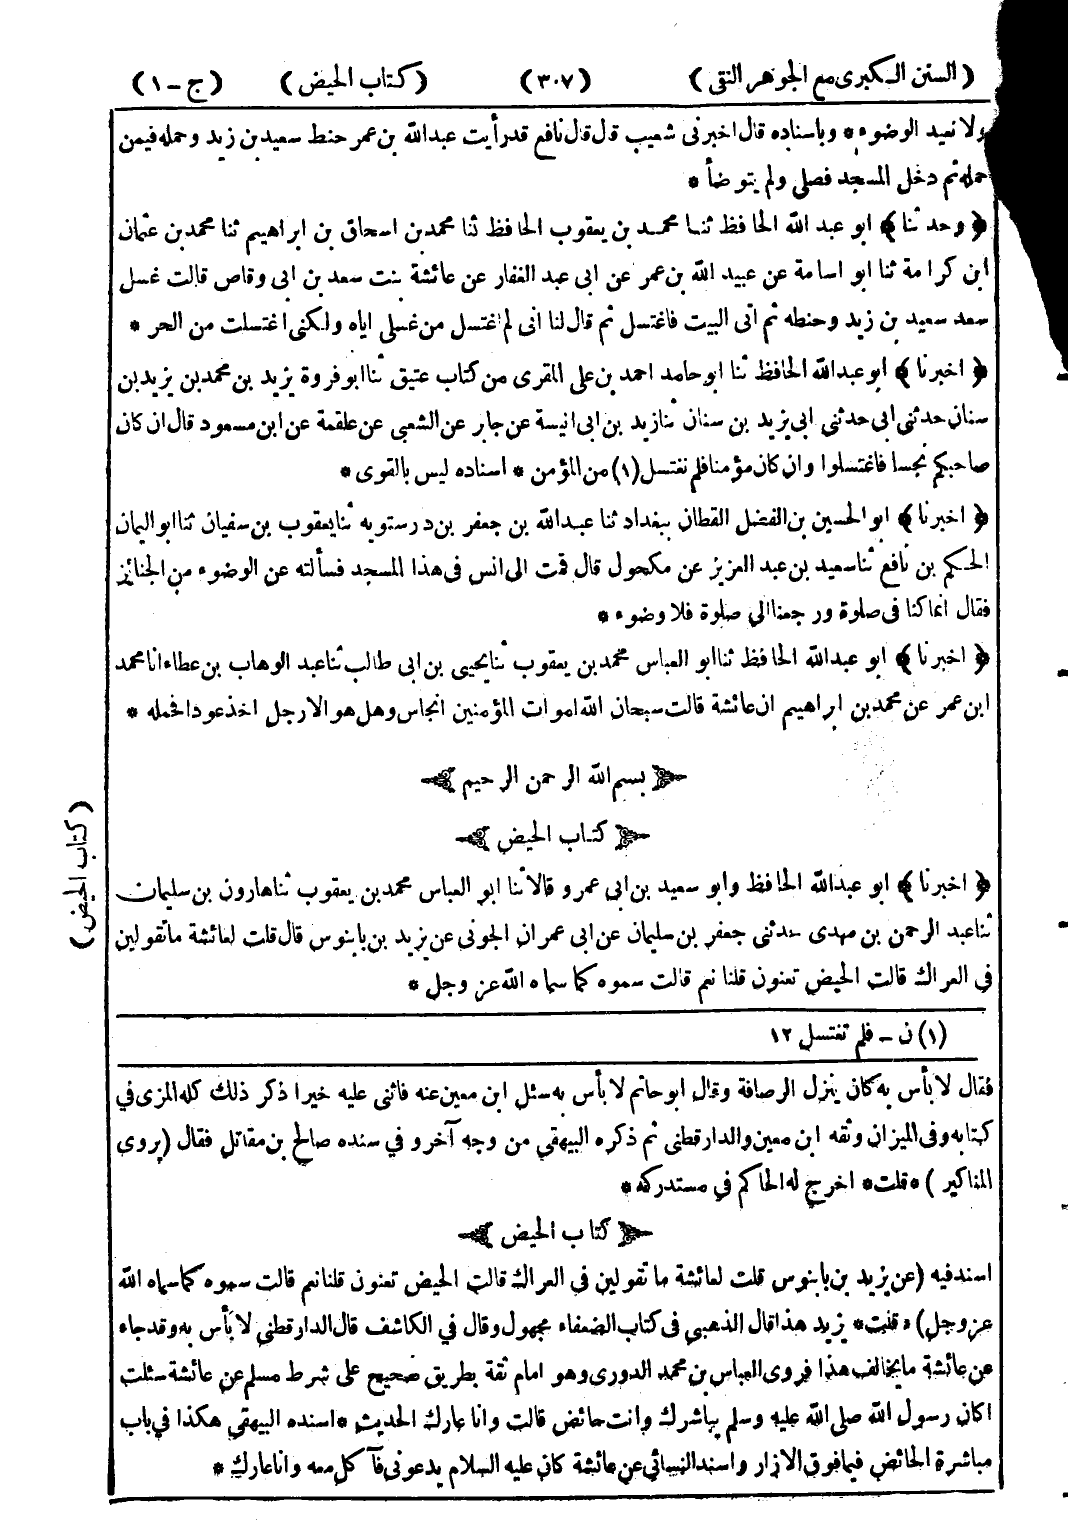 (السنن الكبرى مع الجوهر النقى) (٣٠٧) (كتاب الحيض) (ج - ١)
ولا نعيد الوضوء * وباسناده قال اخبرنى شعيب قال قال نافع قد رأيت عبدالله بن عمر حنط سعيد بن زيد وحمله فيمن
حمله ثم دخل المسجد فصلى ولم يتوضأ *
﴿ وحدثنا ﴾ ابو عبد الله الحافظ ثنا محمد بن يعقوب الحافظ ثنا محمد بن اسحاق بن ابراهيم ثنا محمد بن عثمان
ابن كرامة ثنا ابو اسامة عن عبيد الله بن عمر عن ابى عبد الغفار عن عائشة بنت سعد بن ابى وقاص قالت غسل
سعد سعيد بن زيد وحنطه ثم اتى البيت فاغتسل ثم قال لنا انى لم اغتسل من غسلى اياه ولكنى اغتسلت من الحر *
﴿ اخبرنا ﴾ ابو عبدالله الحافظ ثنا ابو حامد احمد بن على المقرى من كتاب عتيق ثنا ابو فروة يزيد بن محمد بن يزيد بن
سنان حدثنى ابى حدثنى ابى يزيد بن سنان ثنا زيد بن ابى انيسة عن جابر عن الشعبى عن علقمة عن ابن مسعود قال ان كان
صاحبكم نجسا فاغتسلوا وان كان مؤمنا فلم نغتسل (١) من المؤمن * اسناده ليس بالقوى *
﴿ اخبرنا ﴾ ابو الحسين بن الفضل القطان ببغداد ثنا عبدالله بن جعفر بن درستويه ثنا يعقوب بن سفيان ثنا ابو اليمان
الحكم بن نافع ثنا سعيد بن عبد العزيز عن مكحول قال قمت الى انس فى هذا المسجد فسألته عن الوضوء من الجنائز
فقال انما كنا فى صلوة ورجعنا الى صلوة فلا وضوء *
﴿ اخبرنا ﴾ ابو عبدالله الحافظ ثنا ابو العباس محمد بن يعقوب ثنا يحيى بن ابى طالب ثنا عبد الوهاب بن عطاء انا محمد
ابن عمر عن محمد بن ابراهيم ان عائشة قالت سبحان الله اموات المؤمنين انجاس وهل هو الا رجل اخذ عودا فحمله *
بسم الله الرحمن الرحيم
كتاب الحيض
(كتاب الحيض)
﴿ اخبرنا ﴾ ابو عبدالله الحافظ وابو سعيد بن ابى عمرو قالا ثنا ابو العباس محمد بن يعقوب ثنا هارون بن سليمان
ثنا عبد الرحمن بن مهدى حدثنى جعفر بن سليمان عن ابى عمران الجونى عن يزيد بن بابنوس قال قلت لعائشة ما تقولين
فى العراك قالت الحيض تعنون قلنا نعم قالت سموه كما سماه الله عز وجل *
(١) ن - فلم تغتسل ١٢
فقال لا بأس به كان ينزل الرصافة وقال ابو حاتم لا بأس به سئل ابن معين عنه فاثنى عليه خيرا ذكر ذلك كله المزى فى
كتابه وفى الميزان وثقه ابن معين والدارقطنى ثم ذكره البيهقى من وجه آخر وفى سنده صالح بن مقاتل فقال (يروى
المناكير) * قلت * اخرج له الحاكم فى مستدركه *
كتاب الحيض
اسند فيه (عن يزيد بن بابنوس قلت لعائشة ما تقولين فى العراك قالت الحيض تعنون قلنا نعم قالت سموه كما سماه الله
عز وجل) * قلت * يزيد هذا قال الذهبى فى كتاب الضعفاء مجهول وقال فى الكاشف قال الدارقطنى لا بأس به وقد جاء
عن عائشة ما يخالف هذا فروى العباس بن محمد الدورى وهو امام ثقة بطريق صحيح على شرط مسلم عن عائشة سئلت
اكان رسول الله صلى الله عليه وسلم يباشرك وانت حائض قالت وانا عارك الحديث * اسنده البيهقى هكذا فى باب
مباشرة الحائض فيما فوق الازار واسند النسائى عن عائشة كان عليه السلام يدعونى فآكل معه وانا عارك *